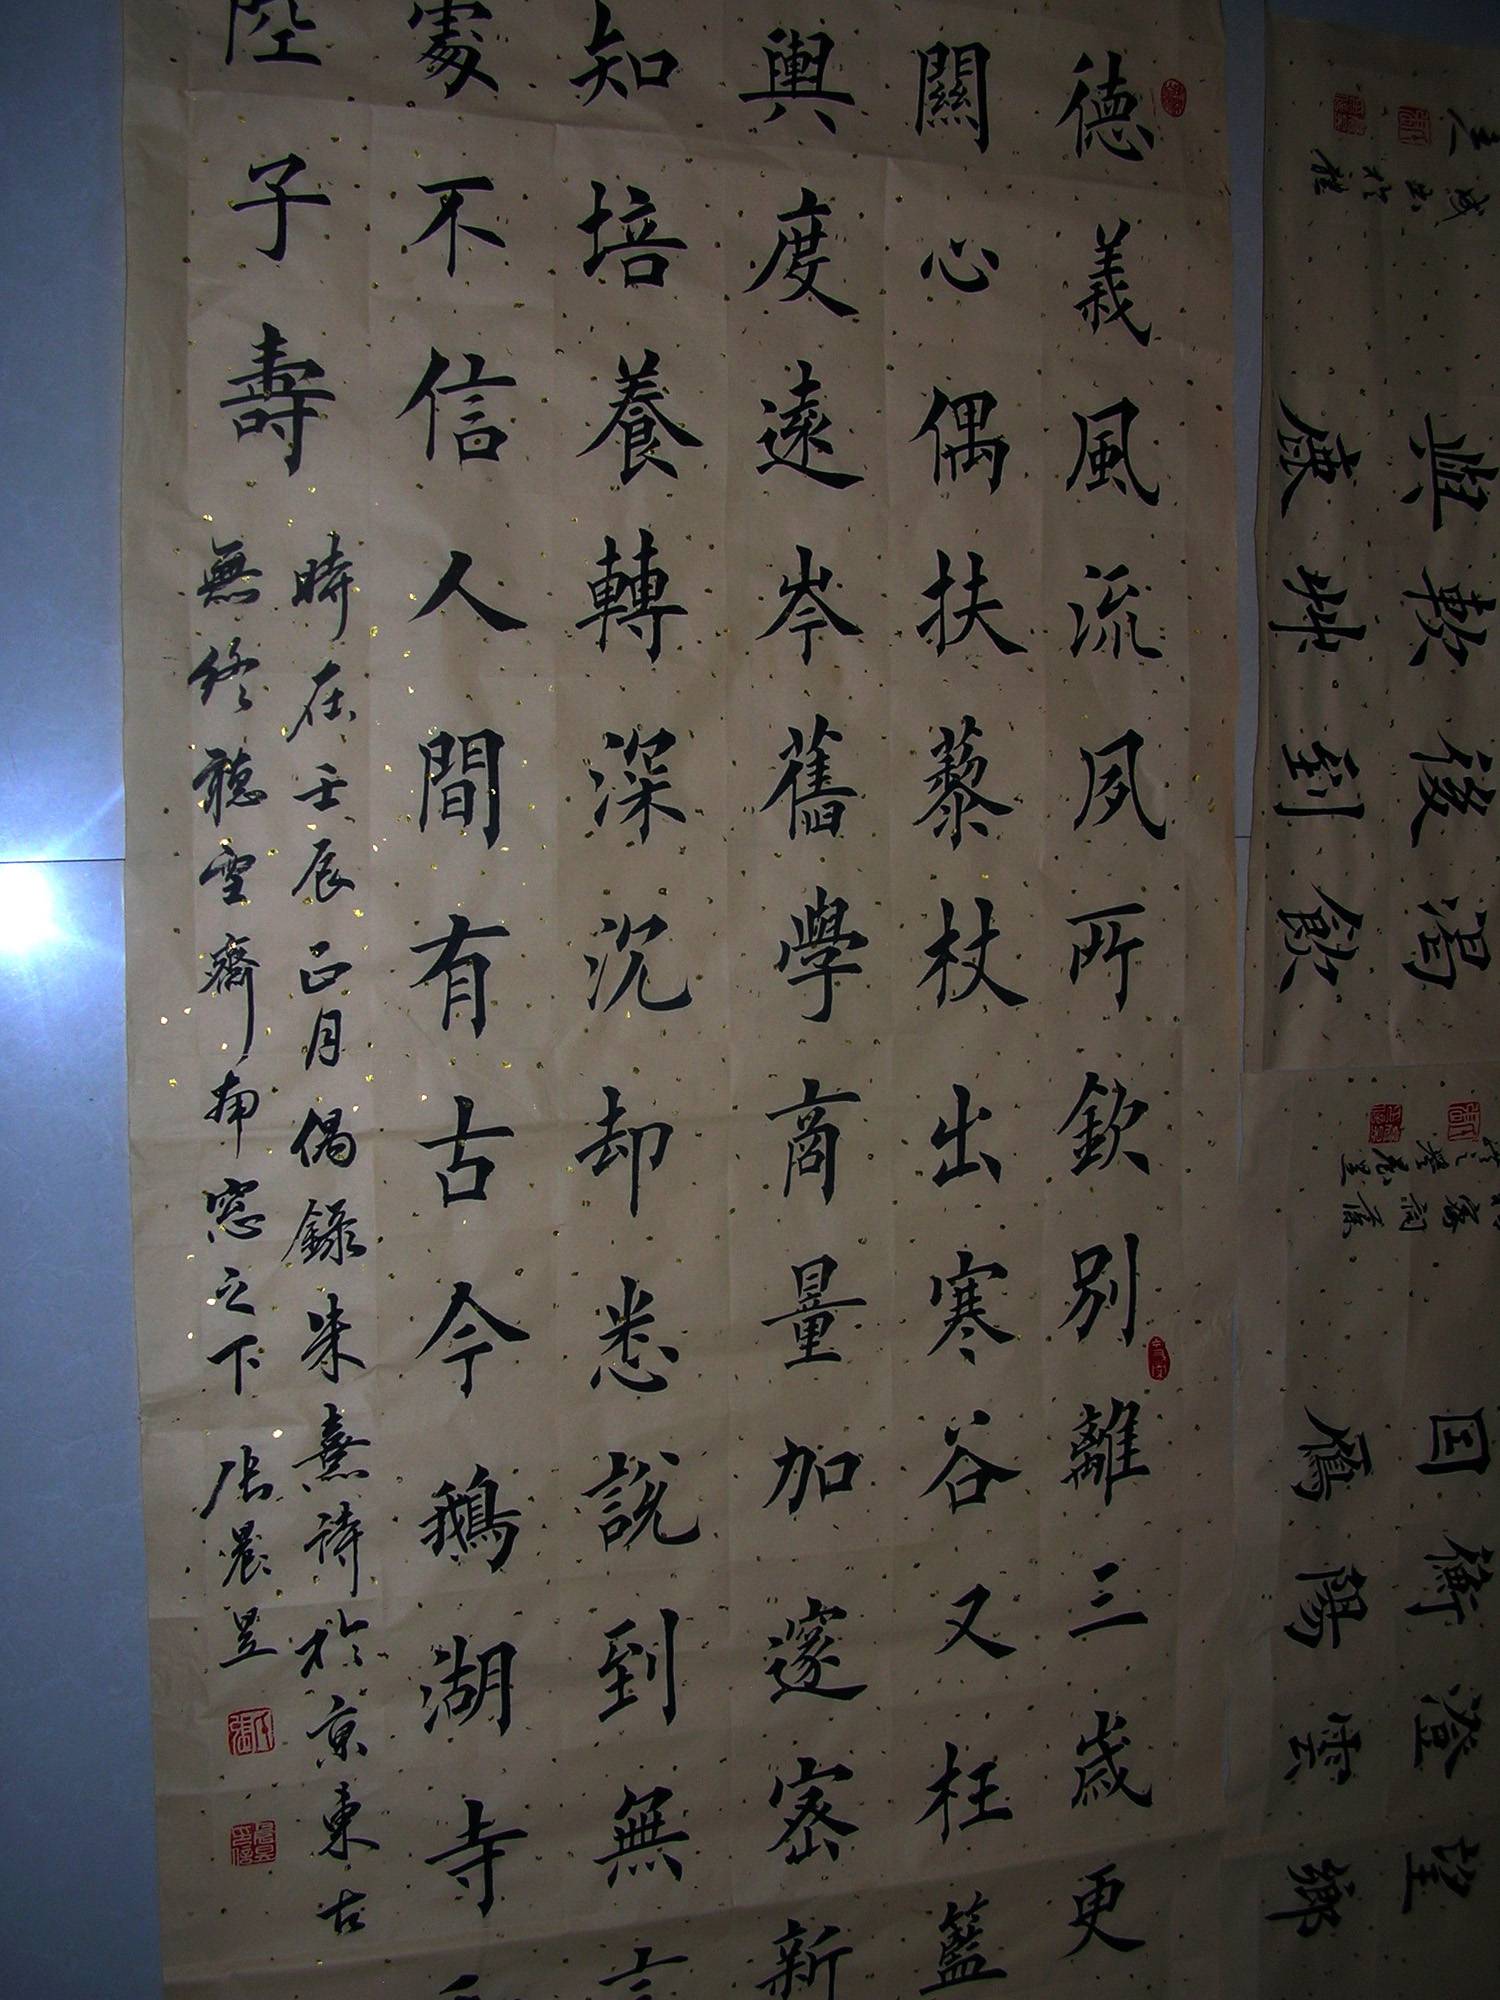 德義風流夙所欽别離三歲更
關心偶扶藜杖出寒谷又枉籃
輿度遠岑舊學商量加邃密新
知培養轉深沉却悉說到無言
處不信人間有古今鵝湖寺和
陸子壽
時在壬辰正月偶錄朱熹詩於京東古
無終聽雪齋南窓之下 張晨昱
興 軟 後 渴
康 坤 到 飲
国 衡 澄 望
鴈 陽 雲 鄉